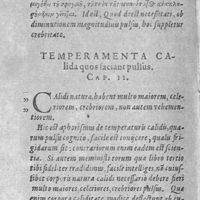 Id est, Quod deest necessitati, ob
diminutionem magnitudinis pulsus, hoc suppletur
crebritate.
TEMPERAMENTA CA-
lida quos faciant pulsus.
CAP. II.
Calidi natura, habent multo maiorem, cele-
riorem, crebriorem, non autem vehemen-
tiorem.
Hic est aphorismus de temperaturis calidis, quarum
pulsus cognito, facile est coniicere, quali fri-
gidarum sit: contrariorum enim eadem est scientia.
Si autem meministi eorum quae libro tertio
tibi fideliter tradidimus, facile intelliges
corporis natura calidi necessario debere fieri
multo maiores, celeriores, crebriores pulsus. Quo-
etiam